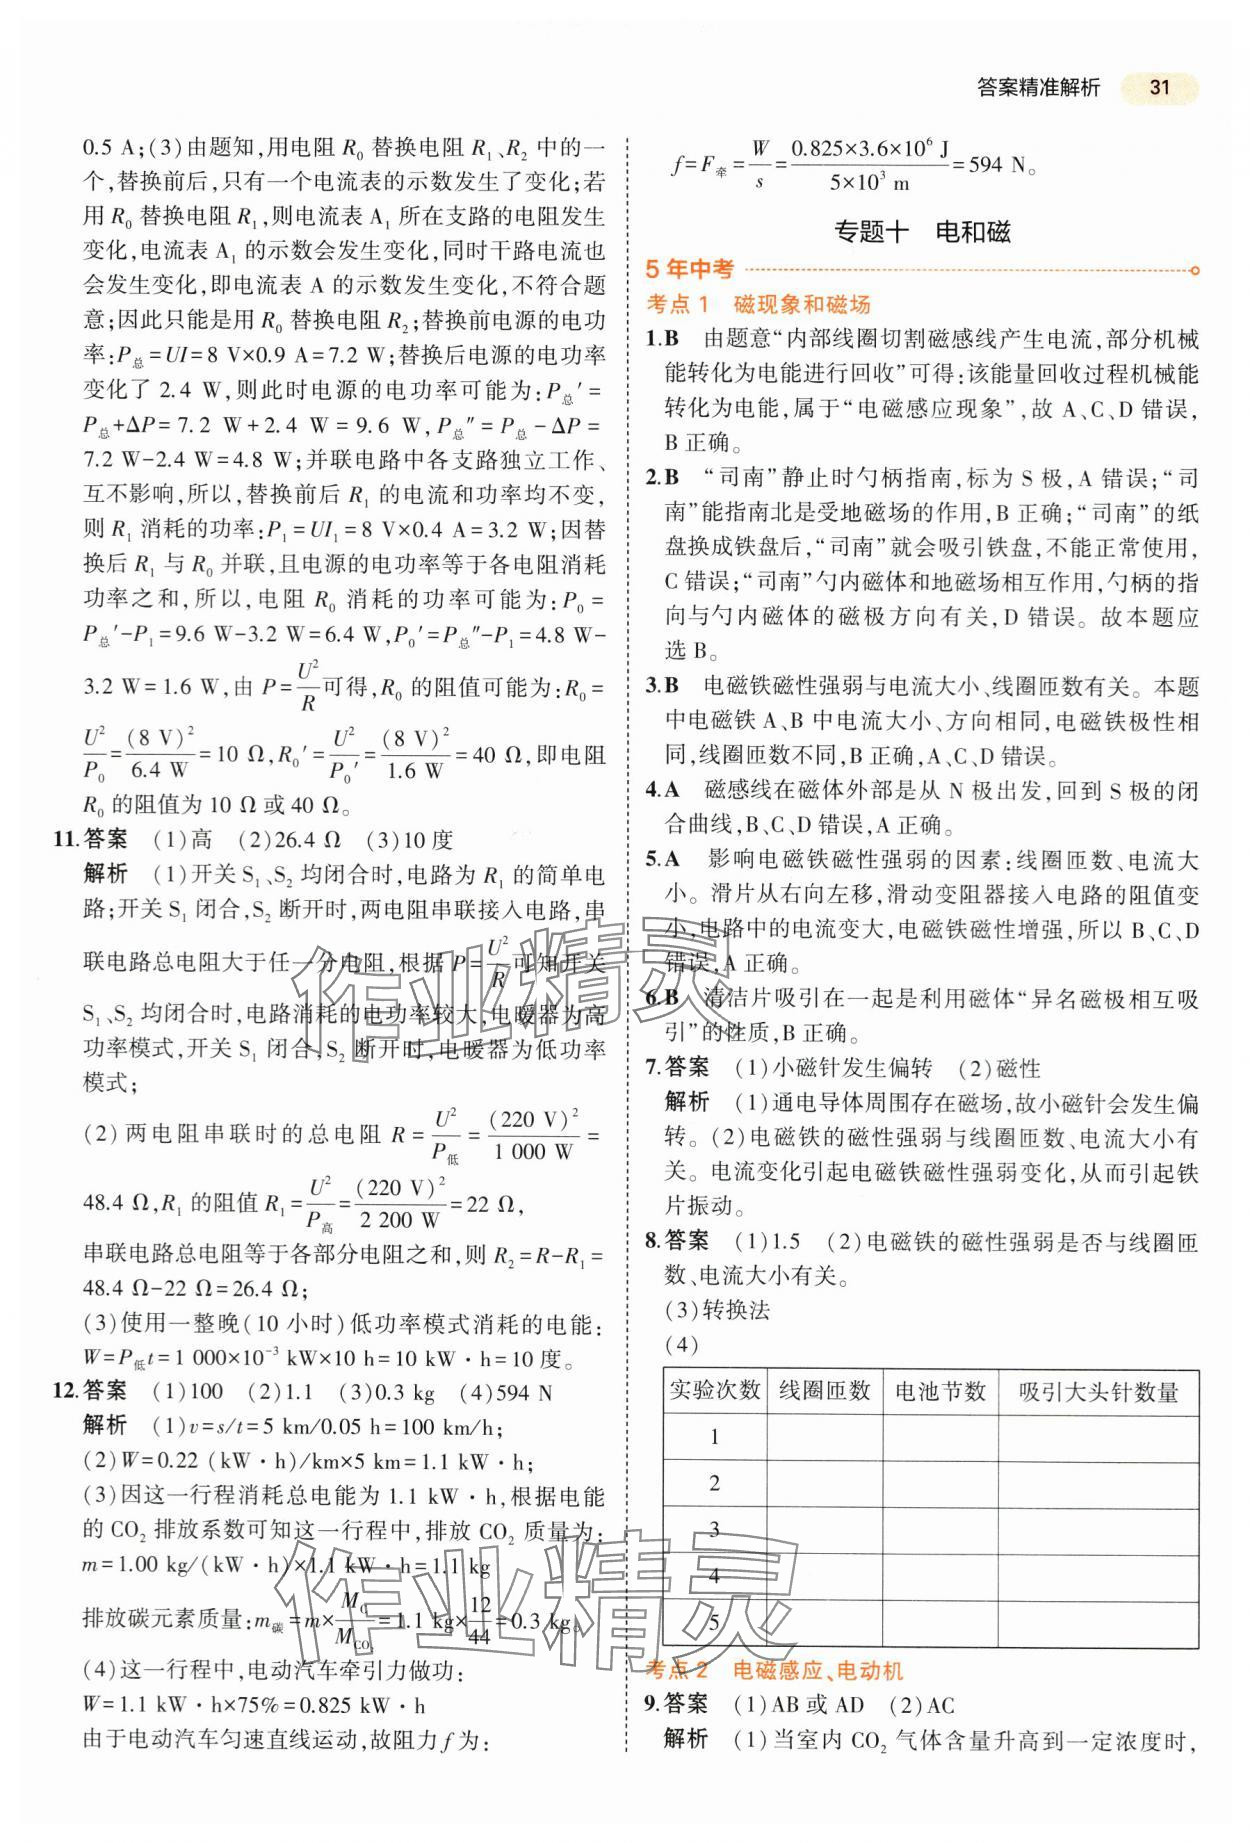 答案精准解析 31
0.5 A;(3)由题知,用电阻 R₀ 替换电阻 R₁、R₂ 中的一
个,替换前后,只有一个电流表的示数发生了变化;若
用 R₀ 替换电阻 R₁,则电流表 A₁ 所在支路的电阻发生
变化,电流表 A₁ 的示数会发生变化,同时干路电流也
会发生变化,即电流表 A 的示数发生变化,不符合题
意;因此只能是用 R₀ 替换电阻 R₂;替换前电源的电功
率:P总=UI=8 V×0.9 A=7.2 W;替换后电源的电功率
变化了 2.4 W,则此时电源的电功率可能为:P总′=
P总+ΔP=7.2 W+2.4 W=9.6 W,P总″=P总-ΔP=
7.2 W-2.4 W=4.8 W;并联电路中各支路独立工作、
互不影响,所以,替换前后 R₁ 的电流和功率均不变,
则 R₁ 消耗的功率:P₁=UI₁=8 V×0.4 A=3.2 W;因替
换后 R₁ 与 R₀ 并联,且电源的电功率等于各电阻消耗
功率之和,所以,电阻 R₀ 消耗的功率可能为:P₀=
P总′-P₁=9.6 W-3.2 W=6.4 W,P₀′=P总″-P₁=4.8 W-
3.2 W=1.6 W,由 P=U²/R可得,R₀ 的阻值可能为:R₀=
U²/P₀=(8 V)²/6.4 W=10 Ω,R₀′=U²/P₀′=(8 V)²/1.6 W=40 Ω,即电阻
R₀ 的阻值为 10 Ω 或 40 Ω。
11.答案 (1)高 (2)26.4 Ω (3)10 度
解析 (1)开关 S₁、S₂ 均闭合时,电路为 R₁ 的简单电
路;开关 S₁ 闭合,S₂ 断开时,两电阻串联接入电路,串
联电路总电阻大于任一分电阻,根据 P=U²/R可知开关
S₁、S₂ 均闭合时,电路消耗的电功率较大,电暖器为高
功率模式,开关 S₁ 闭合,S₂ 断开时,电暖器为低功率
模式;
(2)两电阻串联时的总电阻 R=U²/P低=(220 V)²/1 000 W=
48.4 Ω,R₁ 的阻值 R₁=U²/P高=(220 V)²/2 200 W=22 Ω,
串联电路总电阻等于各部分电阻之和,则 R₂=R-R₁=
48.4 Ω-22 Ω=26.4 Ω;
(3)使用一整晚(10 小时)低功率模式消耗的电能:
W=P低t=1 000×10⁻³ kW×10 h=10 kW·h=10 度。
12.答案 (1)100 (2)1.1 (3)0.3 kg (4)594 N
解析 (1)v=s/t=5 km/0.05 h=100 km/h;
(2)W=0.22 (kW·h)/km×5 km=1.1 kW·h;
(3)因这一行程消耗总电能为 1.1 kW·h,根据电能
的 CO₂ 排放系数可知这一行程中,排放 CO₂ 质量为:
m=1.00 kg/(kW·h)×1.1 kW·h=1.1 kg
排放碳元素质量:m碳=m×M_C/M_CO₂=1.1 kg×12/44=0.3 kg。
(4)这一行程中,电动汽车牵引力做功:
W=1.1 kW·h×75%=0.825 kW·h
由于电动汽车匀速直线运动,故阻力 f 为:
f=F牵=W/s=0.825×3.6×10⁶ J/5×10³ m=594 N。
专题十 电和磁
5 年中考
考点 1 磁现象和磁场
1.B 由题意“内部线圈切割磁感线产生电流,部分机械
能转化为电能进行回收”可得:该能量回收过程机械能
转化为电能,属于“电磁感应现象”,故 A、C、D 错误,
B 正确。
2.B “司南”静止时勺柄指南,标为 S 极,A 错误;“司
南”能指南北是受地磁场的作用,B 正确;“司南”的纸
盘换成铁盘后,“司南”就会吸引铁盘,不能正常使用,
C 错误;“司南”勺内磁体和地磁场相互作用,勺柄的指
向与勺内磁体的磁极方向有关,D 错误。故本题应
选 B。
3.B 电磁铁磁性强弱与电流大小、线圈匝数有关。本题
中电磁铁 A、B 中电流大小、方向相同,电磁铁极性相
同,线圈匝数不同,B 正确,A、C、D 错误。
4.A 磁感线在磁体外部是从 N 极出发,回到 S 极的闭
合曲线,B、C、D 错误,A 正确。
5.A 影响电磁铁磁性强弱的因素:线圈匝数、电流大
小。滑片从右向左移,滑动变阻器接入电路的阻值变
小,电路中的电流变大,电磁铁磁性增强,所以 B、C、D
错误,A 正确。
6.B 清洁片吸引在一起是利用磁体“异名磁极相互吸
引”的性质,B 正确。
7.答案 (1)小磁针发生偏转 (2)磁性
解析 (1)通电导体周围存在磁场,故小磁针会发生偏
转。(2)电磁铁的磁性强弱与线圈匝数、电流大小有
关。电流变化引起电磁铁磁性强弱变化,从而引起铁
片振动。
8.答案 (1)1.5 (2)电磁铁的磁性强弱是否与线圈匝
数、电流大小有关。
(3)转换法
(4)
实验次数 线圈匝数 电池节数 吸引大头针数量
1
2
3
4
5
考点 2 电磁感应、电动机
9.答案 (1)AB 或 AD (2)AC
解析 (1)当室内 CO₂ 气体含量升高到一定浓度时,
作业精灵
作业精灵